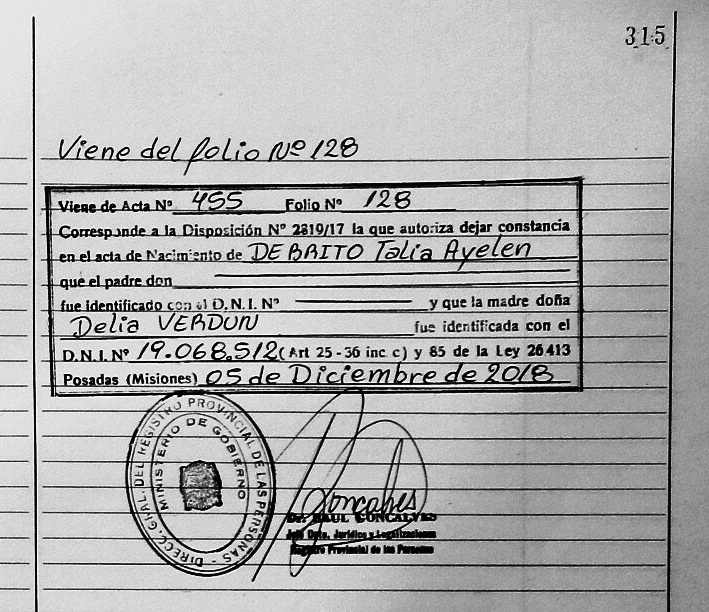 315
Viene del folio Nº 128
Viene de Acta Nº 455 Folio Nº 128
Corresponde a la Disposición Nº 2819/17 la que autoriza dejar constancia
en el acta de Nacimiento de DE BRITO Talia Ayelen
que el padre don
fue identificado con el D.N.I. Nº y que la madre doña
Delia VERDUN fue identificada con el
D.N.I. Nº 19.068.512 (Art 25-36 inc c) y 85 de la Ley 26413
Posadas (Misiones) 05 de Diciembre de 2018
DIRECC. GRAL. DEL REGISTRO PROVINCIAL DE LAS PERSONAS -
MINISTERIO DE GOBIERNO
Goncalves
Dr. RAUL GONCALVES
Jefe Dpto. Jurídico y Legalizaciones
Registro Provincial de las Personas